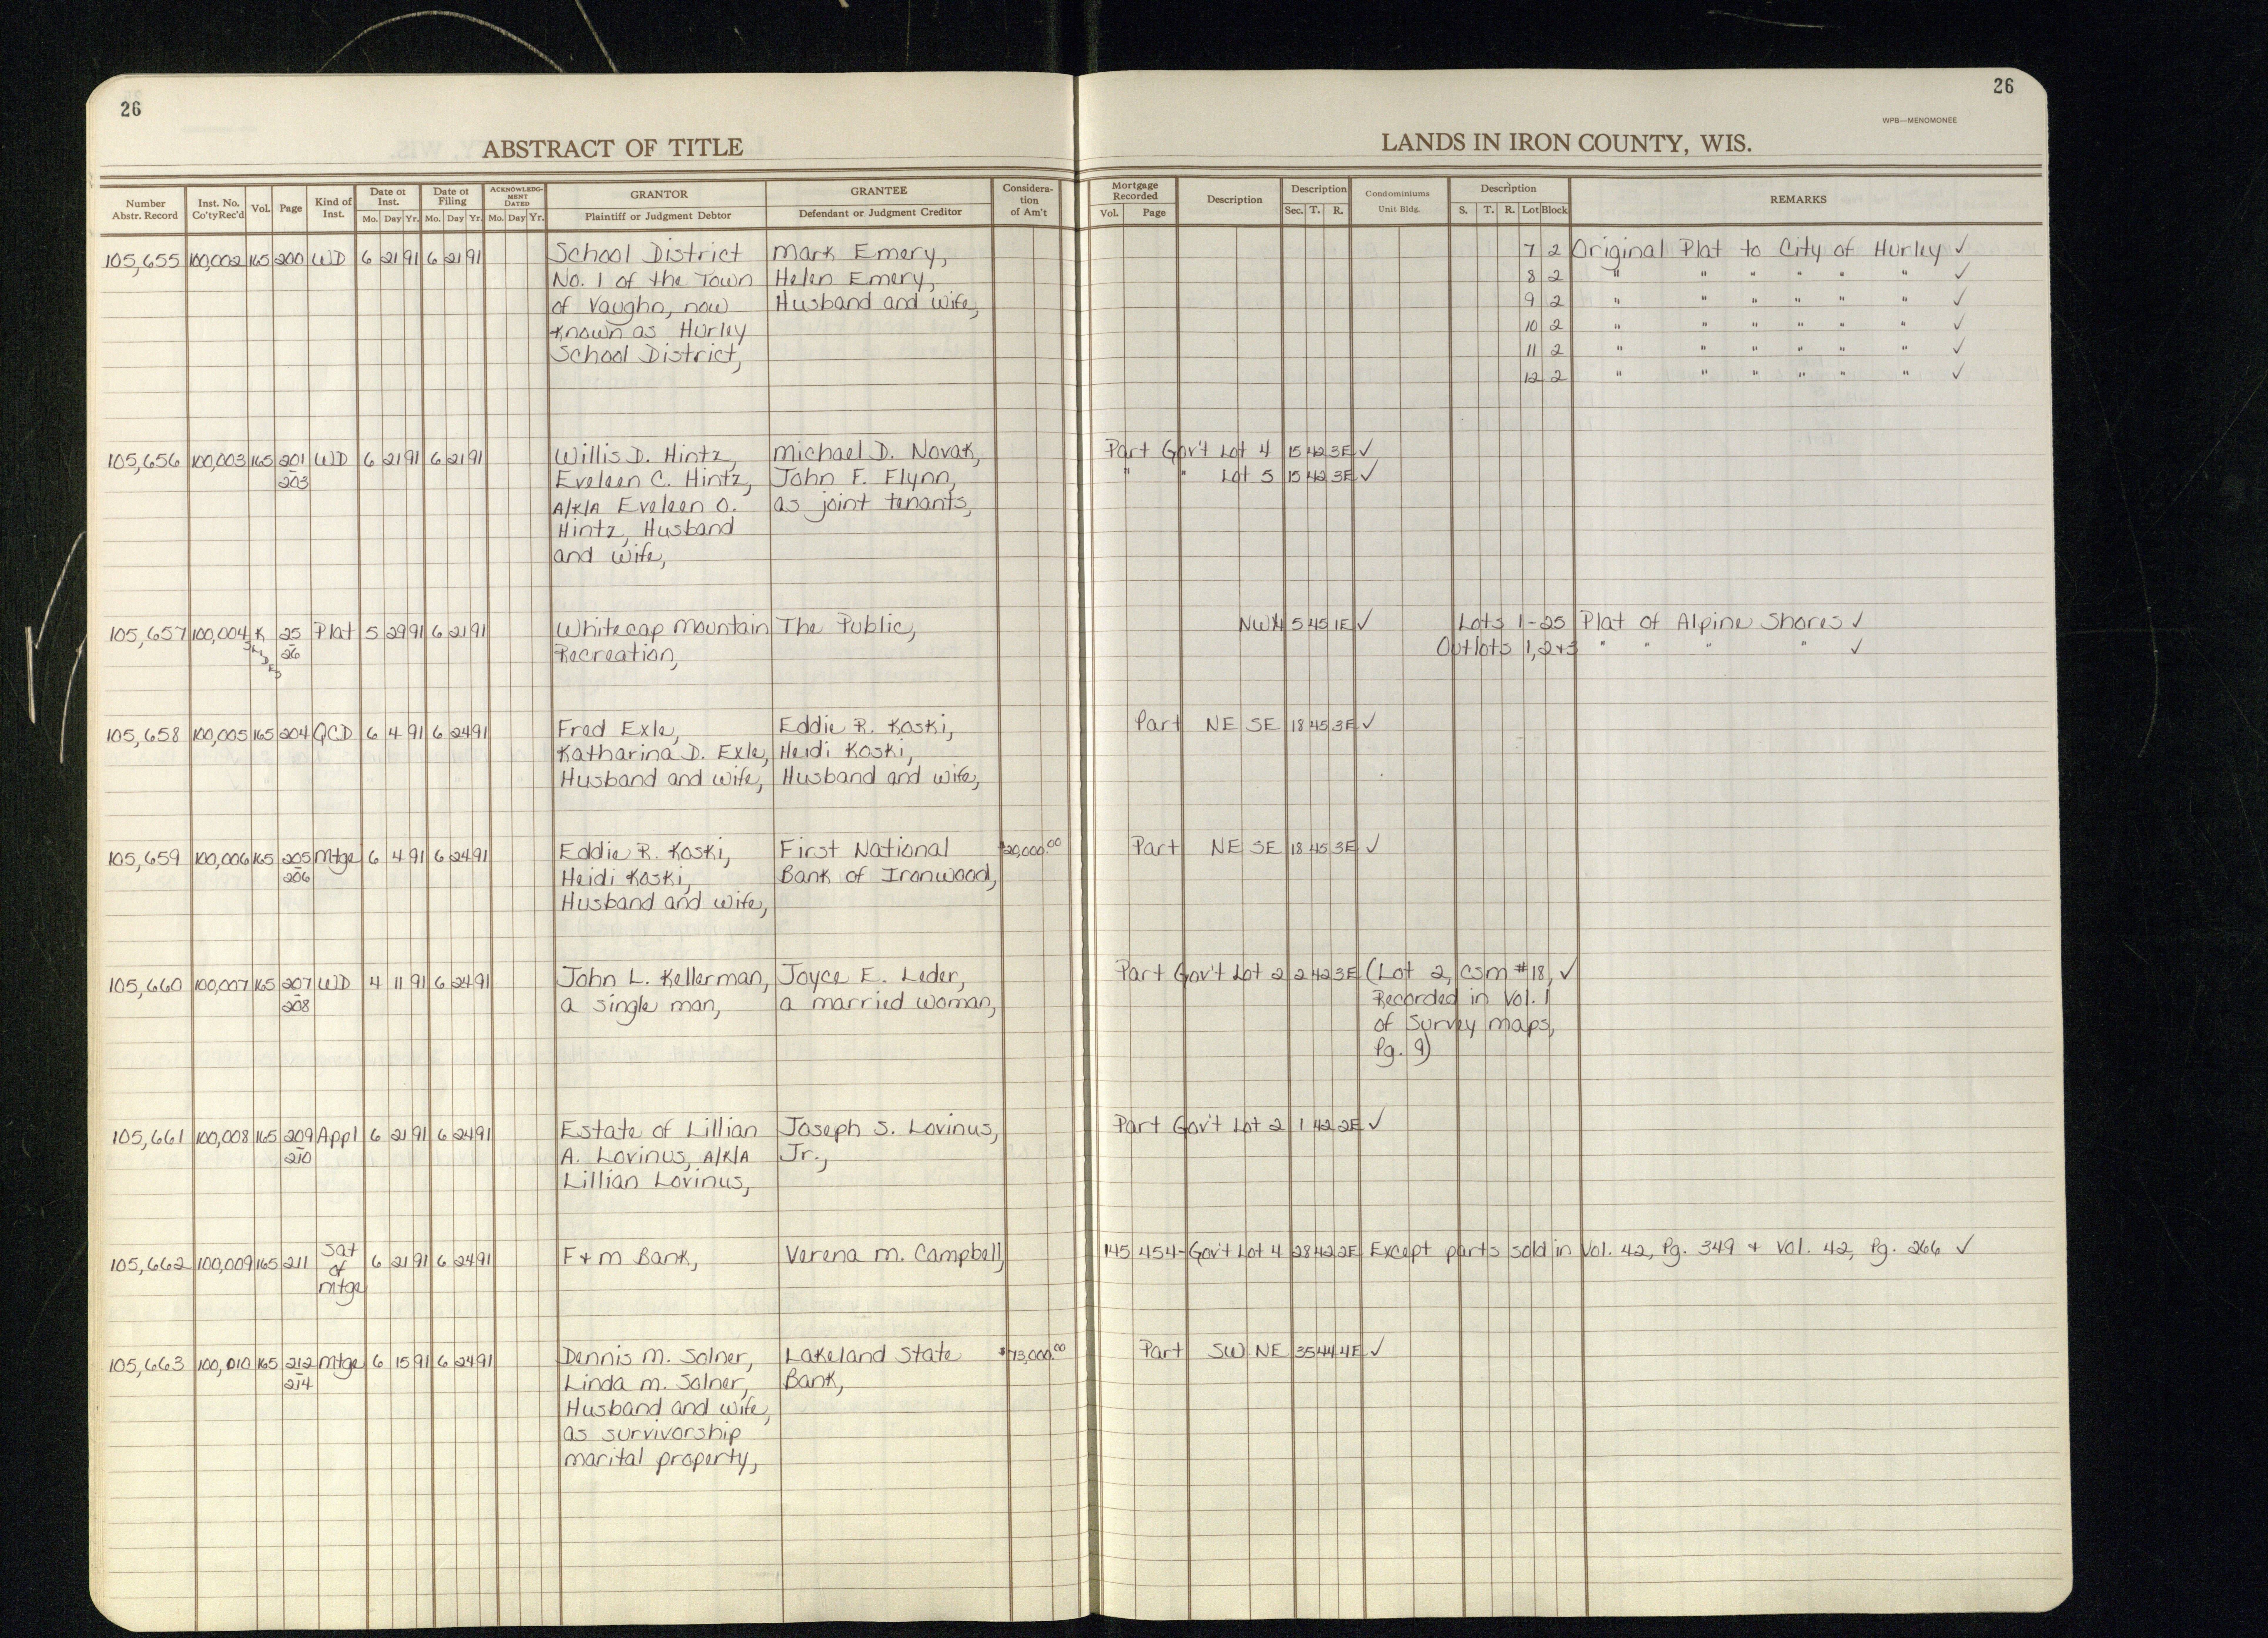 26
26
WPB—MENOMONEE
ABSTRACT OF TITLE
LANDS IN IRON COUNTY, WIS.
Number Abstr. Record
Inst. No. Co'ty Rec'd
Vol.
Page
Kind of Inst.
Date of Inst.
Mo. Day Yr.
Date of Filing
Mo. Day Yr.
ACKNOWLEDGMENT DATED
Mo. Day Yr.
GRANTOR
Plaintiff or Judgment Debtor
GRANTEE
Defendant or Judgment Creditor
Consideration of Am't
Mortgage Recorded
Vol. Page
Description
Description
Sec. T. R.
Condominiums
Unit Bldg.
Description
S. T. R. Lot Block
REMARKS
105,655 100,002 165 200 WD 6 21 91 6 21 91 School District Mark Emery, 7 2 Original Plat to City of Hurley ✓
No. 1 of the Town Helen Emery, 8 2 " " " " " " ✓
of Vaughn, now Husband and wife, 9 2 " " " " " " ✓
known as Hurley 10 2 " " " " " " ✓
School District, 11 2 " " " " " " ✓
12 2 " " " " " " ✓
105,656 100,003 165 201 WD 6 21 91 6 21 91 Willis D. Hintz, Michael D. Novak, Part Gov't Lot 4 15 42 3E ✓
- 203 Eveleen C. Hintz, John F. Flynn, " " Lot 5 15 42 3E ✓
A/K/A Eveleen O. as joint tenants,
Hintz, Husband
and wife,
105,657 100,004 K 25 Plat 5 29 91 6 21 91 Whitecap Mountain The Public, NW¼ 5 45 1E ✓ Lots 1-25 Plat of Alpine Shores ✓
SLIDES - 26 Recreation, Outlots 1, 2+3 " " " " ✓
105,658 100,005 165 204 QCD 6 4 91 6 24 91 Fred Exle, Eddie R. Koski, Part NE SE 18 45 3E ✓
Katharina D. Exle, Heidi Koski,
Husband and wife, Husband and wife,
105,659 100,006 165 205 Mtge 6 4 91 6 24 91 Eddie R. Koski, First National $20,000.00 Part NE SE 18 45 3E ✓
- 206 Heidi Koski, Bank of Ironwood,
Husband and wife,
105,660 100,007 165 207 WD 4 11 91 6 24 91 John L. Kellerman, Joyce E. Leder, Part Gov't Lot 2 2 42 3E (Lot 2, CSM #18, ✓
- 208 a single man, a married woman, Recorded in Vol. 1
of Survey maps,
Pg. 9)
105,661 100,008 165 209 Appl 6 21 91 6 24 91 Estate of Lillian Joseph S. Lovinus, Part Gov't Lot 2 1 42 2E ✓
- 210 A. Lovinus, A/K/A Jr.,
Lillian Lovinus,
105,662 100,009 165 211 Sat of Mtge 6 21 91 6 24 91 F+M Bank, Verena M. Campbell, 145 454- Gov't Lot 4 28 42 2E Except parts sold in Vol. 42, Pg. 349 + Vol. 42, Pg. 266 ✓
105,663 100,010 165 212 Mtge 6 15 91 6 24 91 Dennis M. Solner, Lakeland State $73,000.00 Part SW NE 35 44 4E ✓
- 214 Linda M. Solner, Bank,
Husband and wife,
as survivorship
marital property,